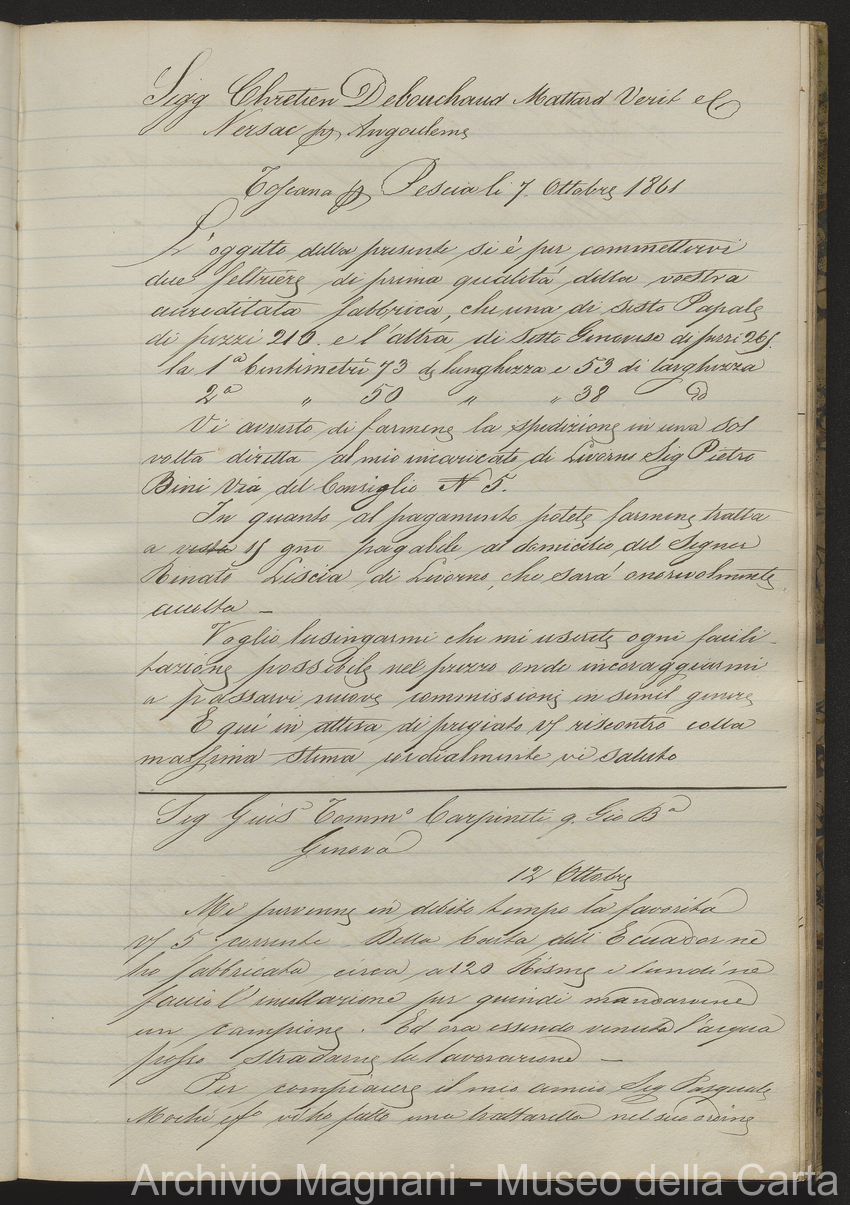 Sigg Chretien Debouchaud Mattard Verit e C
Nersac pr Angouleme
Toscana pr Pescia li 7. Ottobre 1861
L'oggetto della presente si è per commettervi
due feltriere di prima qualità della vostra
accreditata fabbrica, che una di sesto Papale
di pezzi 210. e l'altra di Sesto Genovese di pezzi 265.
la 1a Centimetri 73 di lunghezza e 53 di larghezza
2a " 50 " " 38 do
Vi avverto di farmene la spedizione in una sol
volta diretta al mio incaricato di Livorno Sig Pietro
Bini Via del Consiglio N 5.
In quanto al pagamento potete farmene tratta
a vista 15 gni pagabile al domicilio del Signor
Renato Liscia di Livorno, che sarà onorevolmente
accolta —
Voglio lusingarmi che mi userete ogni facili-
tazione possibile nel prezzo onde incoraggiarmi
a passarvi nuove commissioni in simil genere
E quì in attesa di pregiato vs riscontro colla
massima stima cordialmente vi saluto
Sig Giuse Tommo Carpineti q. Gio Ba
Genova
12 Ottobre
Mi pervenne in debito tempo la favorita
vs 5 corrente. Della Carta dell'Ecuador ne
ho fabbricata circa a 120 Risme e lundì ne
faccio l'incollazione per quindi mandarvene
un campione. Ed ora essendo venuta l'acqua
posso stradarne la lavorazione —
Per compiacere il mio amico Sig Pasquale
Mochi qfo vi ho fatto una trattarella nel suo ordine
Archivio Magnani - Museo della Carta